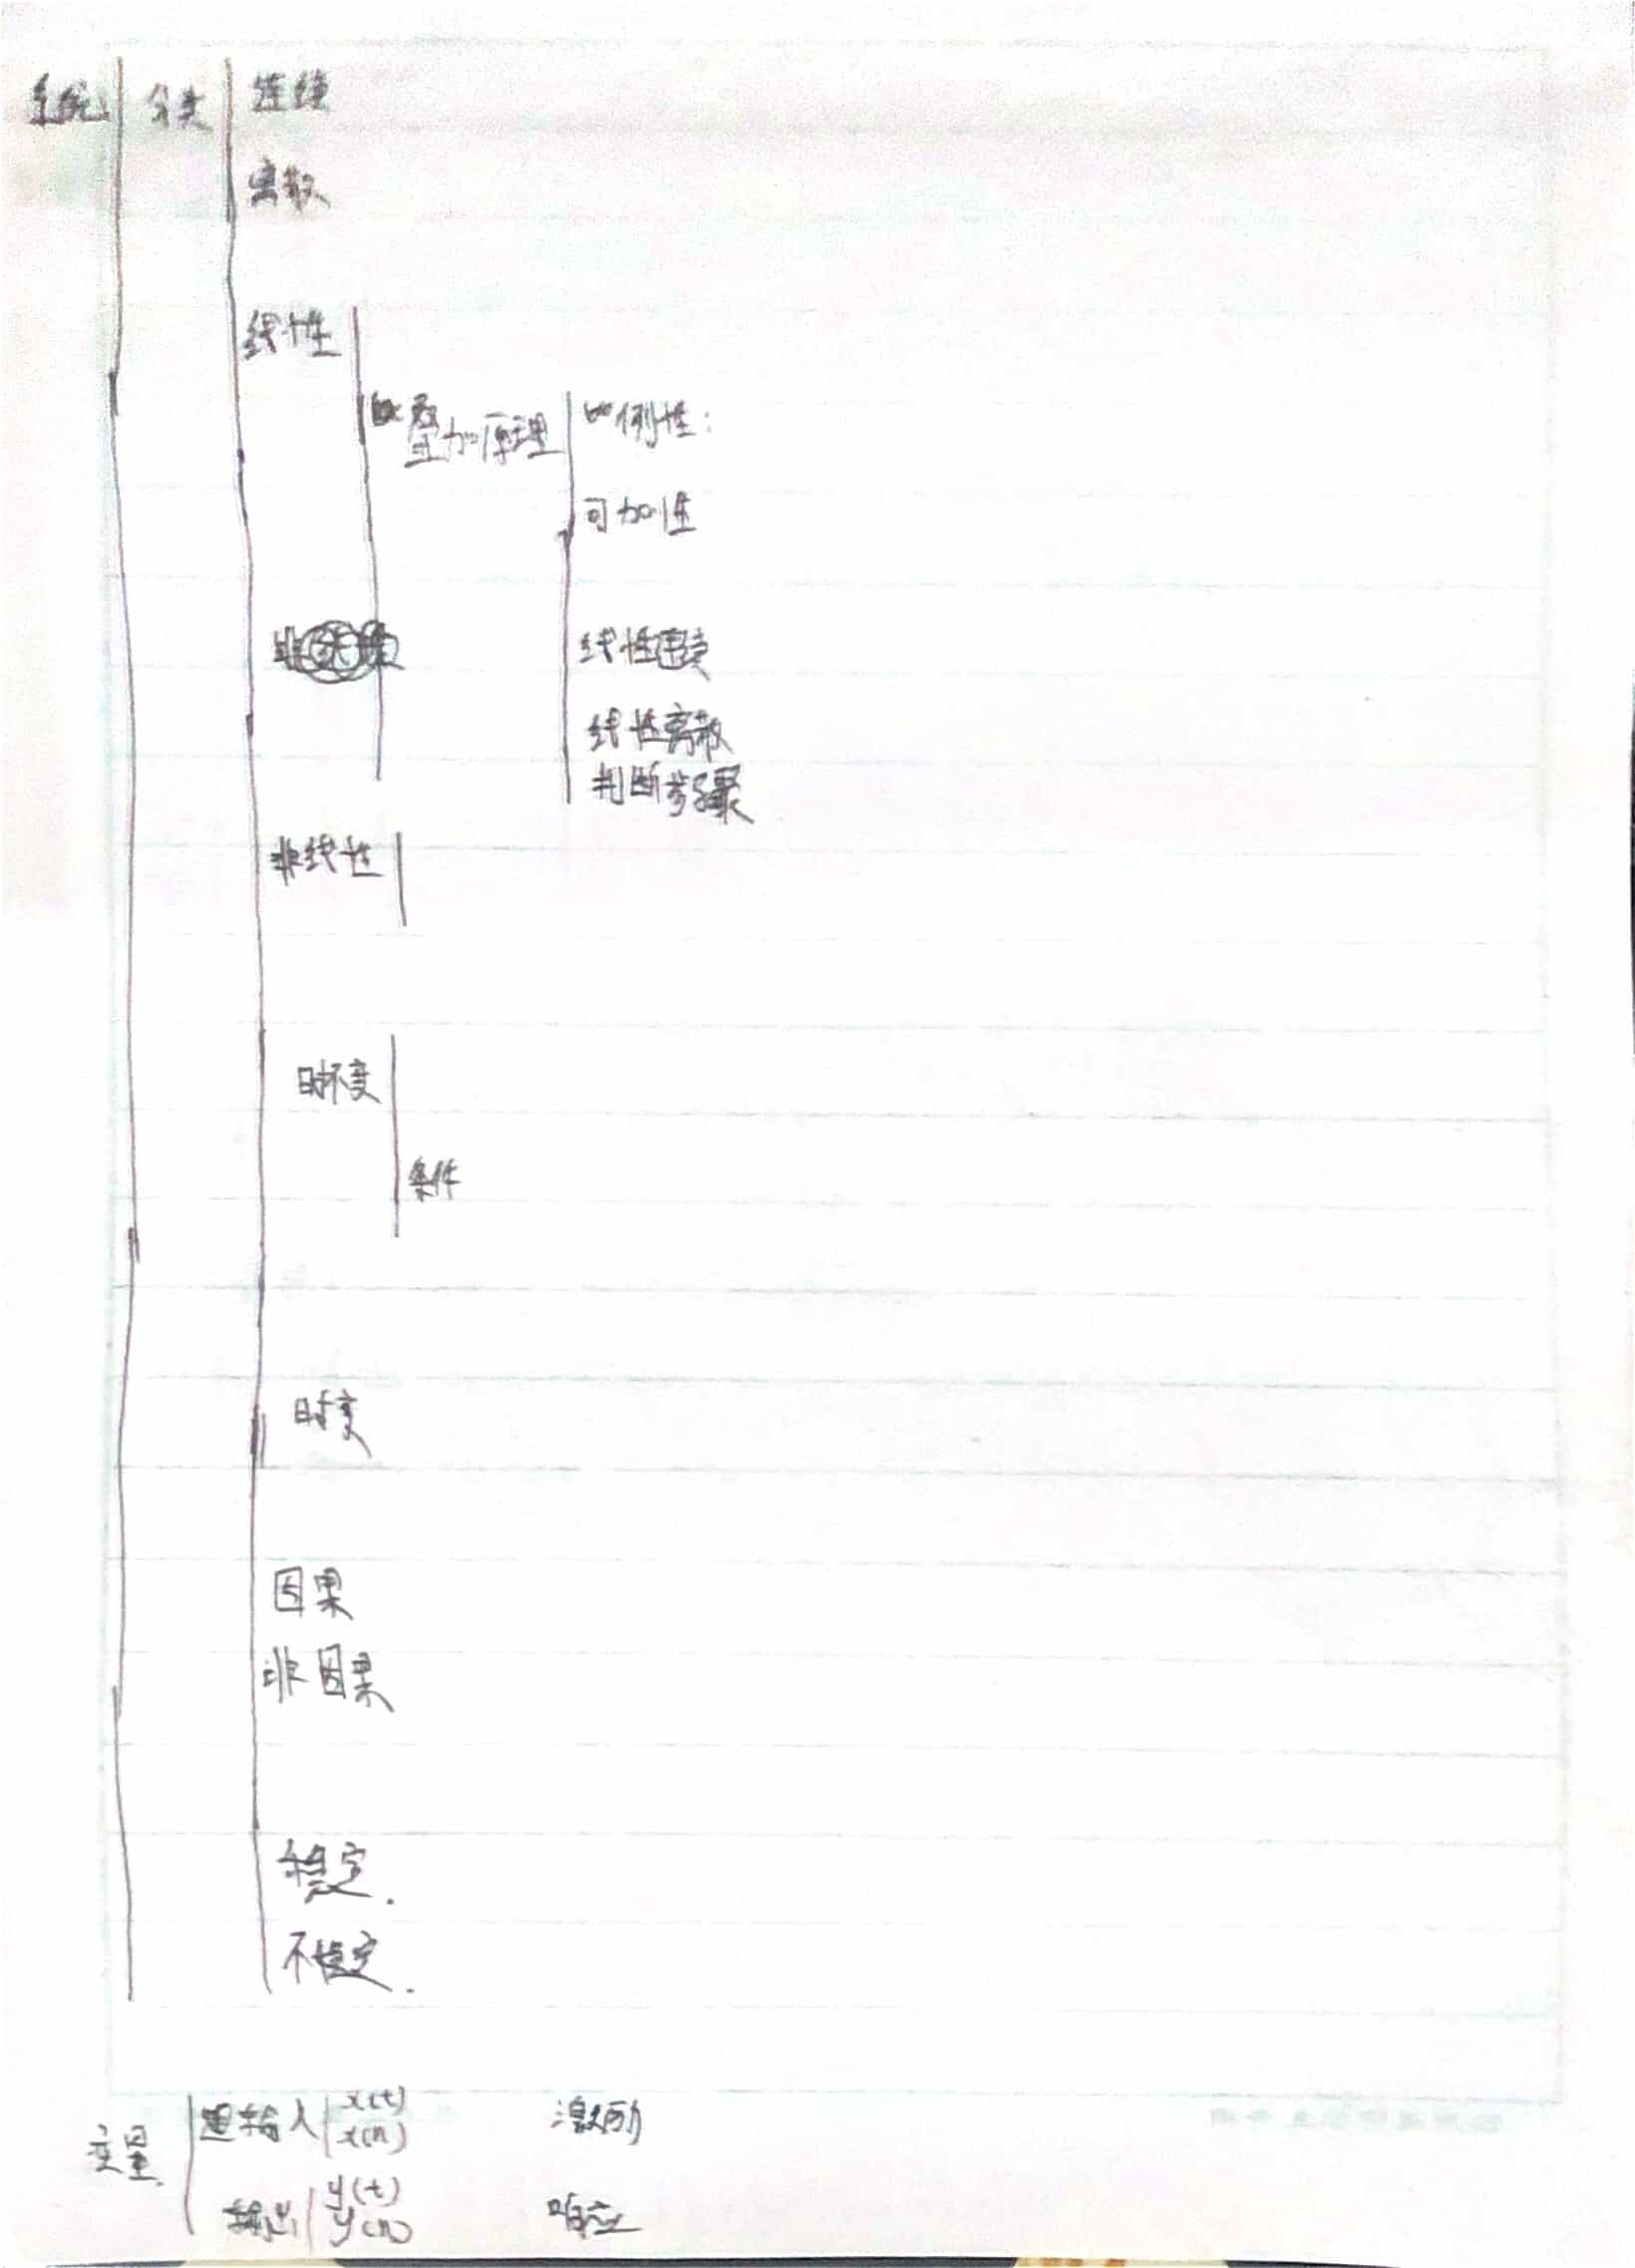 系统 分类 连续
离散
线性
叠加原理 比例性：
可加性
线性连续
线性离散
判断步骤
非线性
时不变
条件
时变
因果
非因果
稳定.
不稳定.
变量 输入 x(t) 激励
x(n)
输出 y(t) 响应
y(n)